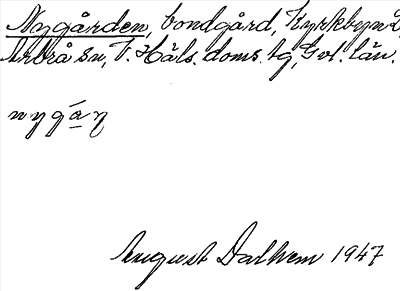 Nygården, bondgård, Kyrkbyn å
Arbrå sn, V. Häls. doms. tg, Gvl. län.
nygạ́ṇ
August Dalhem 1947